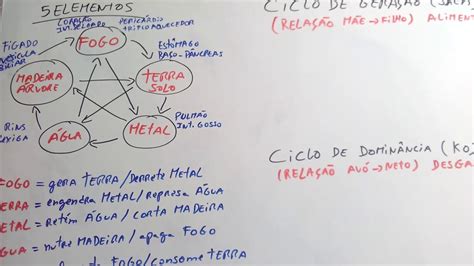 5 ELEMENTOS
CORAÇÃO
INT. DELGADO
PERICÁRDIO
TRIPLO AQUECEDOR
FOGO
FÍGADO
VESÍCULA
BILIAR
ESTÔMAGO
BAÇO-PÂNCREAS
MADEIRA
ÁRVORE
TERRA
SOLO
RINS
BEXIGA
ÁGUA
METAL
PULMÃO
INT. GOSSO
FOGO = gera TERRA / Derrete METAL
TERRA = engendra METAL / Represa ÁGUA
METAL = Retém ÁGUA / Corta MADEIRA
ÁGUA = nutre MADEIRA / apaga FOGO
FOGO / consome TERRA
CICLO DE GERAÇÃO
(RELAÇÃO MÃE → FILHO) ALIMENT
CICLO DE DOMINÂNCIA (KO
(RELAÇÃO AVÓ → NETO) DESGA